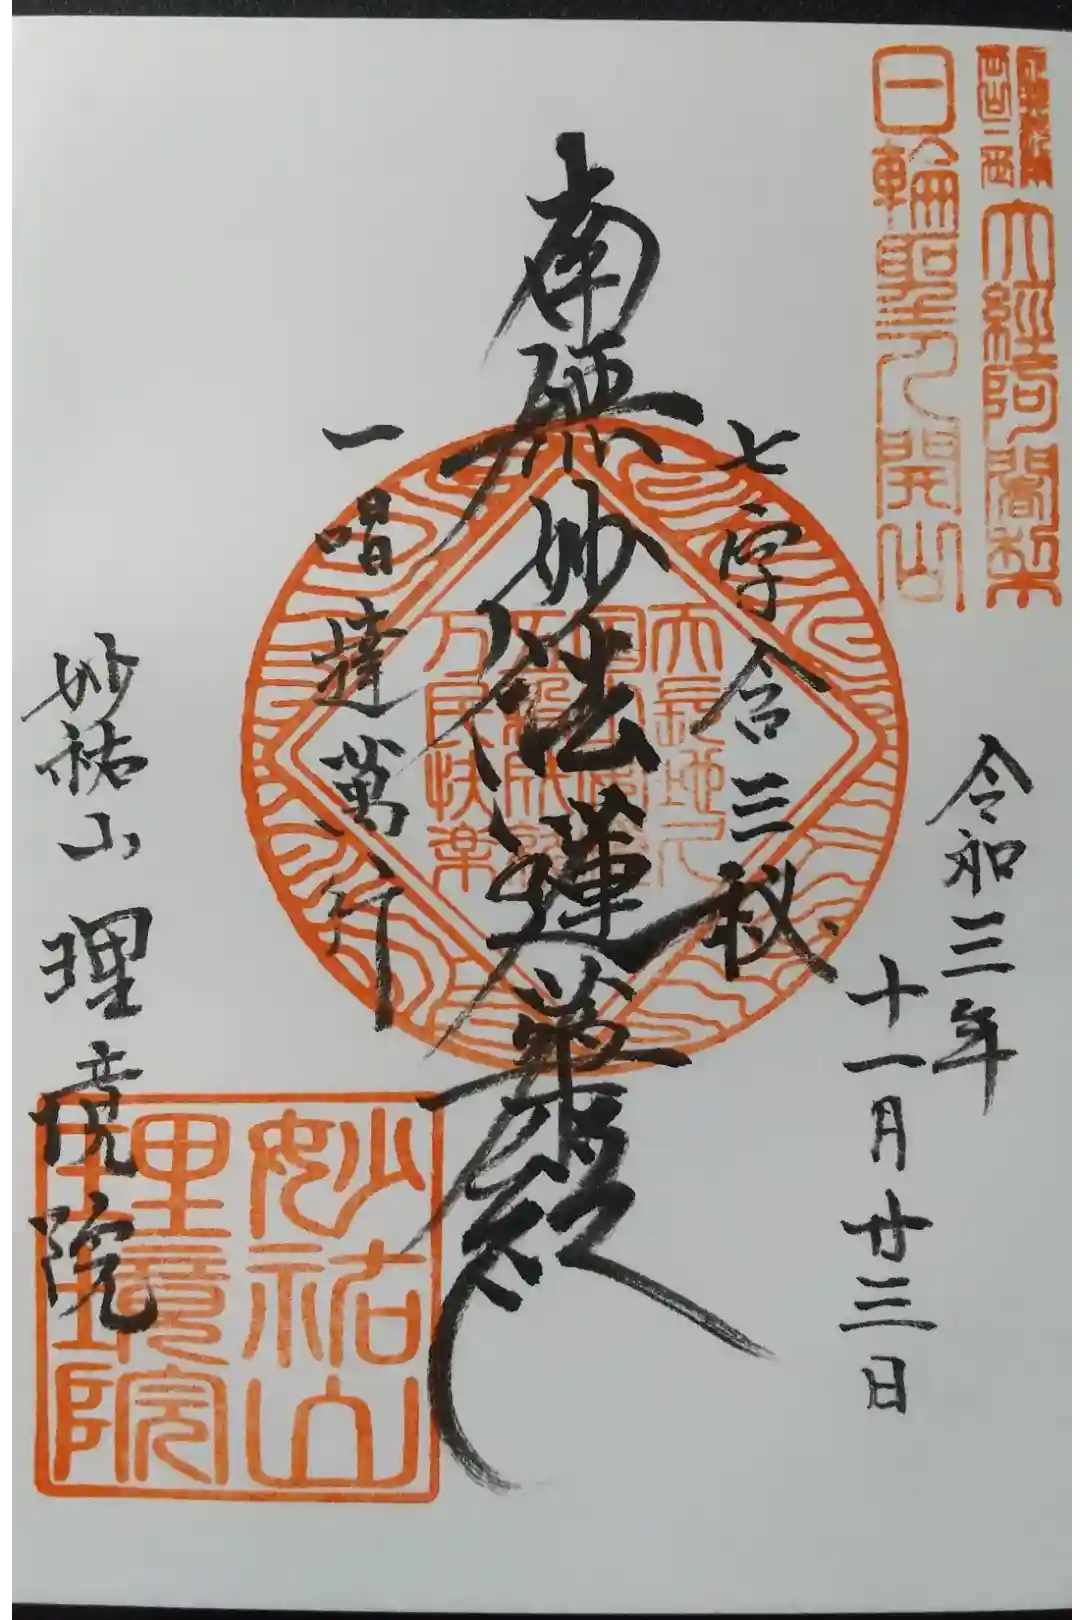 大経阿闍梨
日輪聖人開山
令和三年
十一月廿三日
七字合三秘
南無妙法蓮華経
一唱達萬行
天長地久
万民快楽
妙祐山理境院
妙祐山
理境院